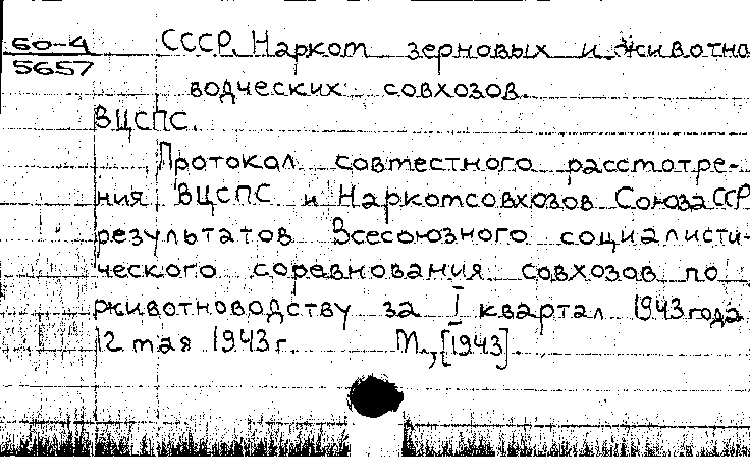 60-4
5657
СССР. Наркомат зерновых и животно
водческих совхозов.
ВЦСПС.
Протокол совместного рассмотре-
ния ВЦСПС и Наркомсовхозов Союза ССР
результатов Всесоюзного социалисти-
ческого соревнования совхозов по
животноводству за I квартал 1943 года
12 мая 1943 г. М., [1943].